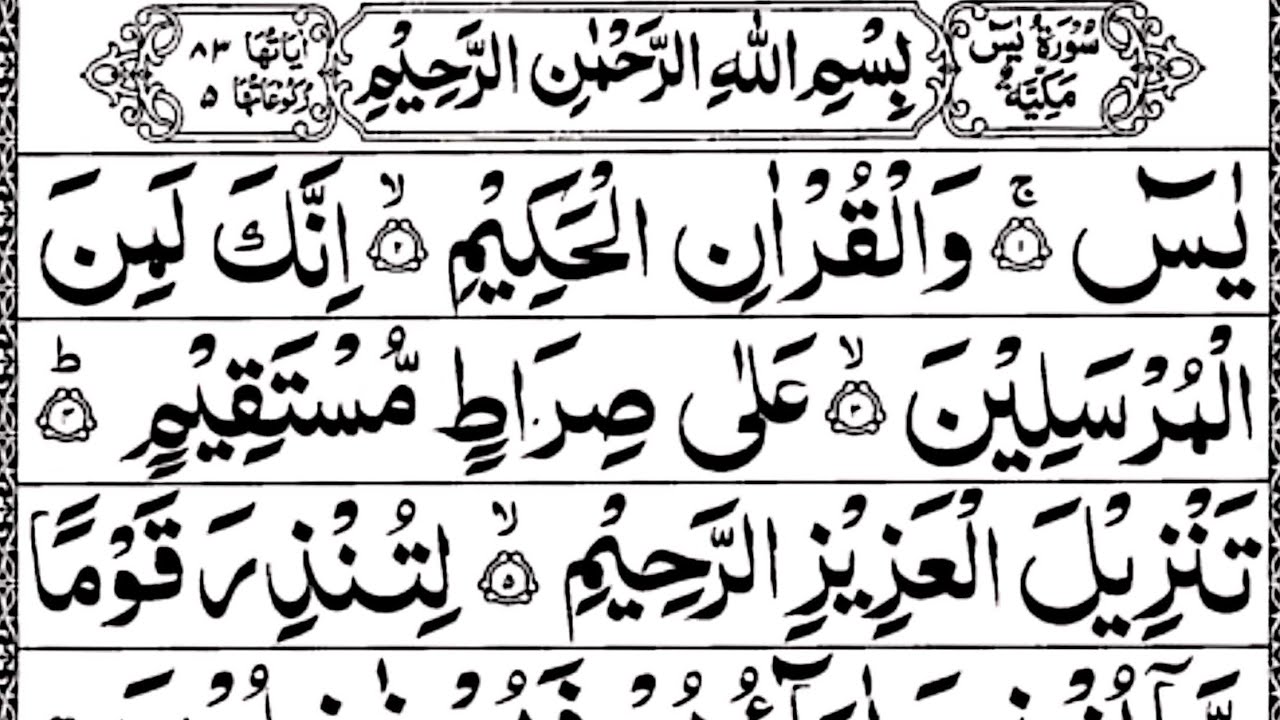 سُوْرَةُ يٰسٓ مَكِّيَّةٌ
بِسْمِ اللّٰهِ الرَّحْمٰنِ الرَّحِيْمِ
اٰيَاتُهَا ٨٣ رُكُوْعَاتُهَا ٥
يٰسٓ ۚ ﴿١﴾ وَالْقُرْاٰنِ الْحَكِيْمِ ۙ ﴿٢﴾ اِنَّكَ لَمِنَ
الْمُرْسَلِيْنَ ۙ ﴿٣﴾ عَلٰى صِرَاطٍ مُّسْتَقِيْمٍ ؕ ﴿٤﴾
تَنْزِيْلَ الْعَزِيْزِ الرَّحِيْمِ ۙ ﴿٥﴾ لِتُنْذِرَ قَوْمًا